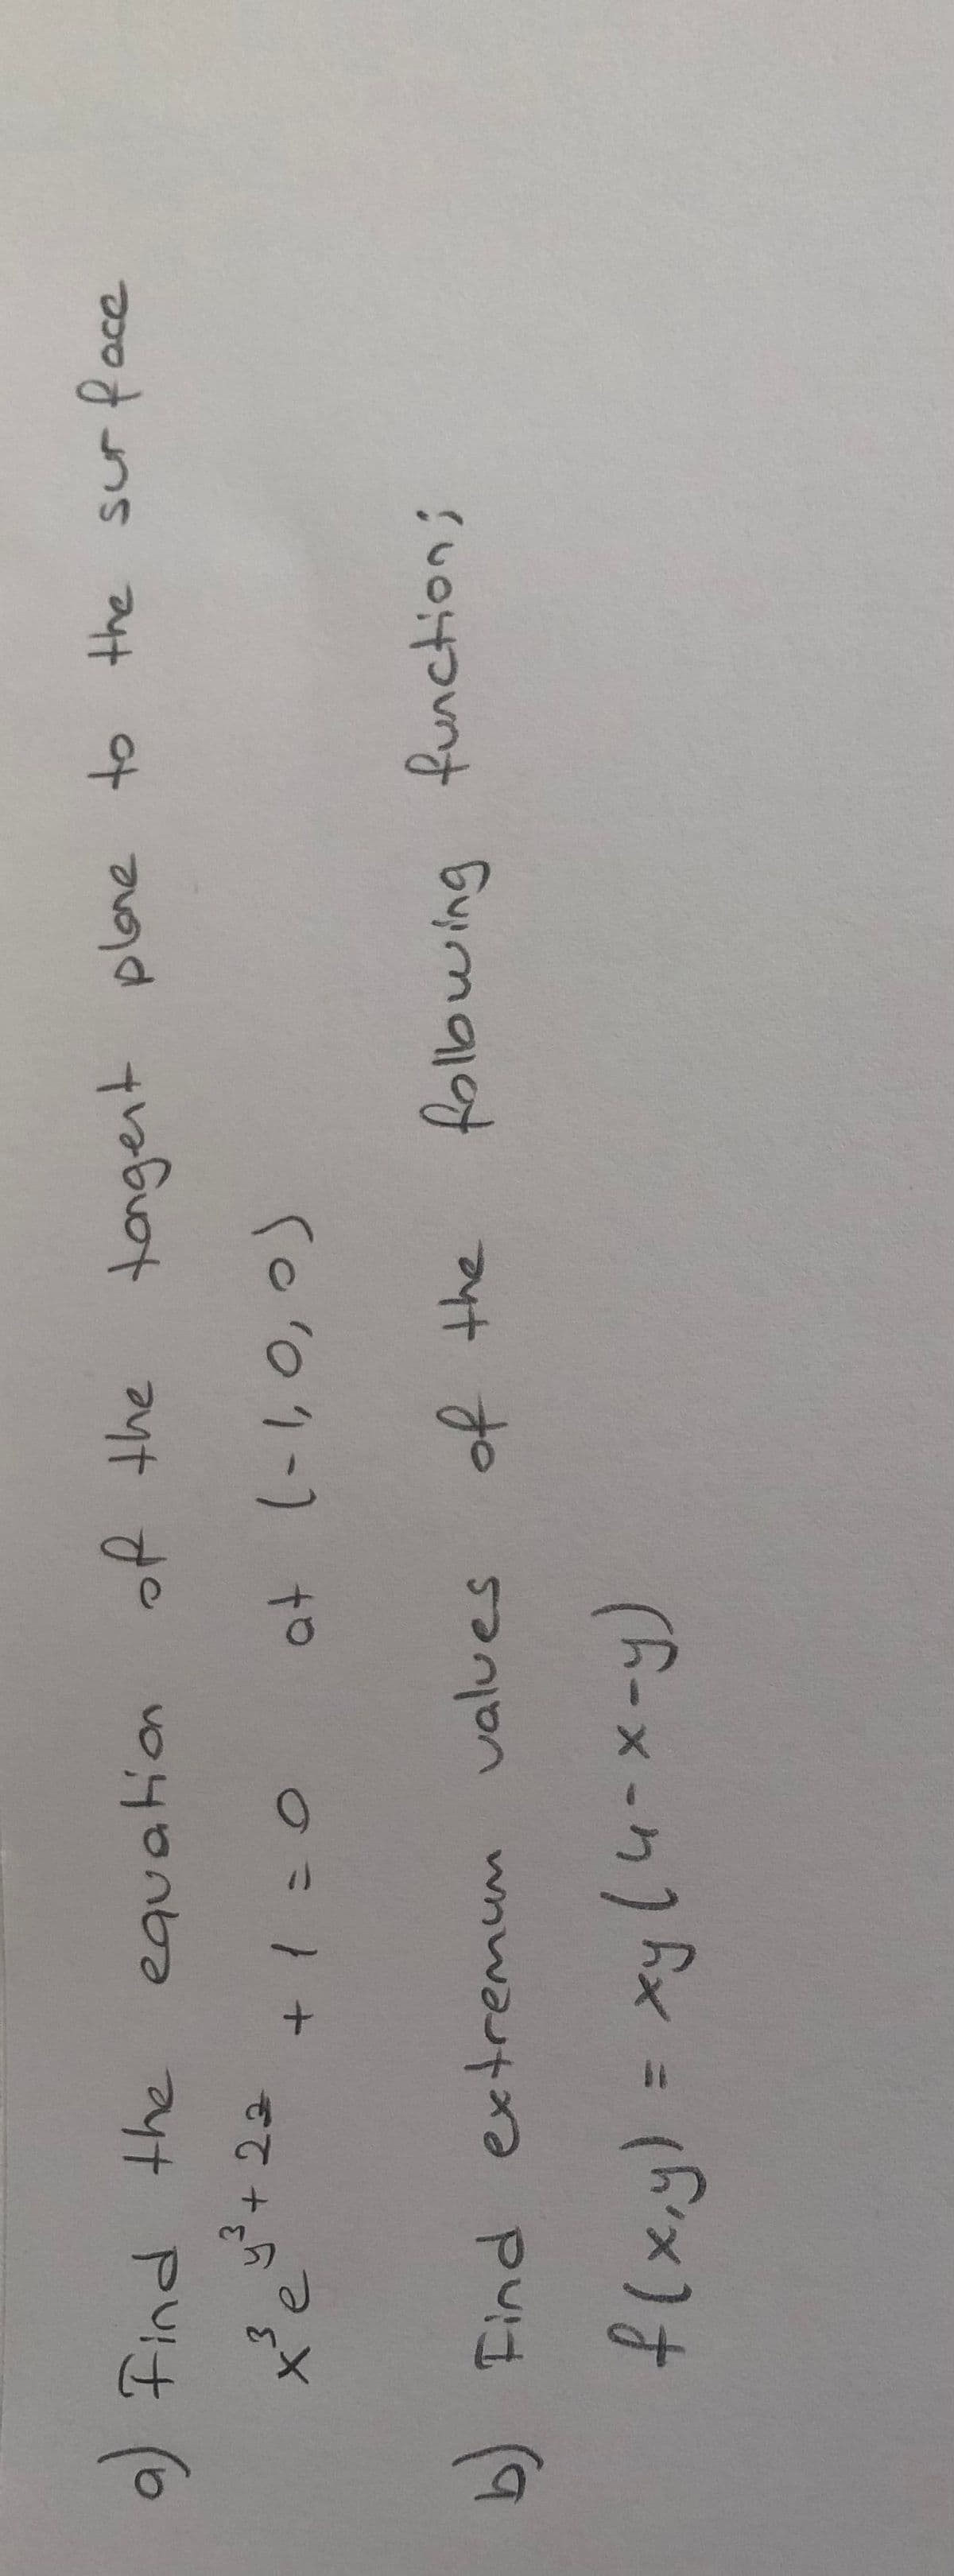 a) Find the equation of the tangent plane to the surface
x³e^{y³+2z} + 1 = 0 at (-1, 0, 0)
b) Find extremum values of the following function;
f(x,y) = xy(4-x-y)